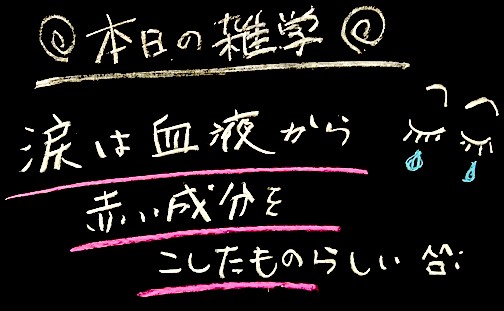 @本日の雑学@
涙は血液から
赤い成分を
こしたものらしい